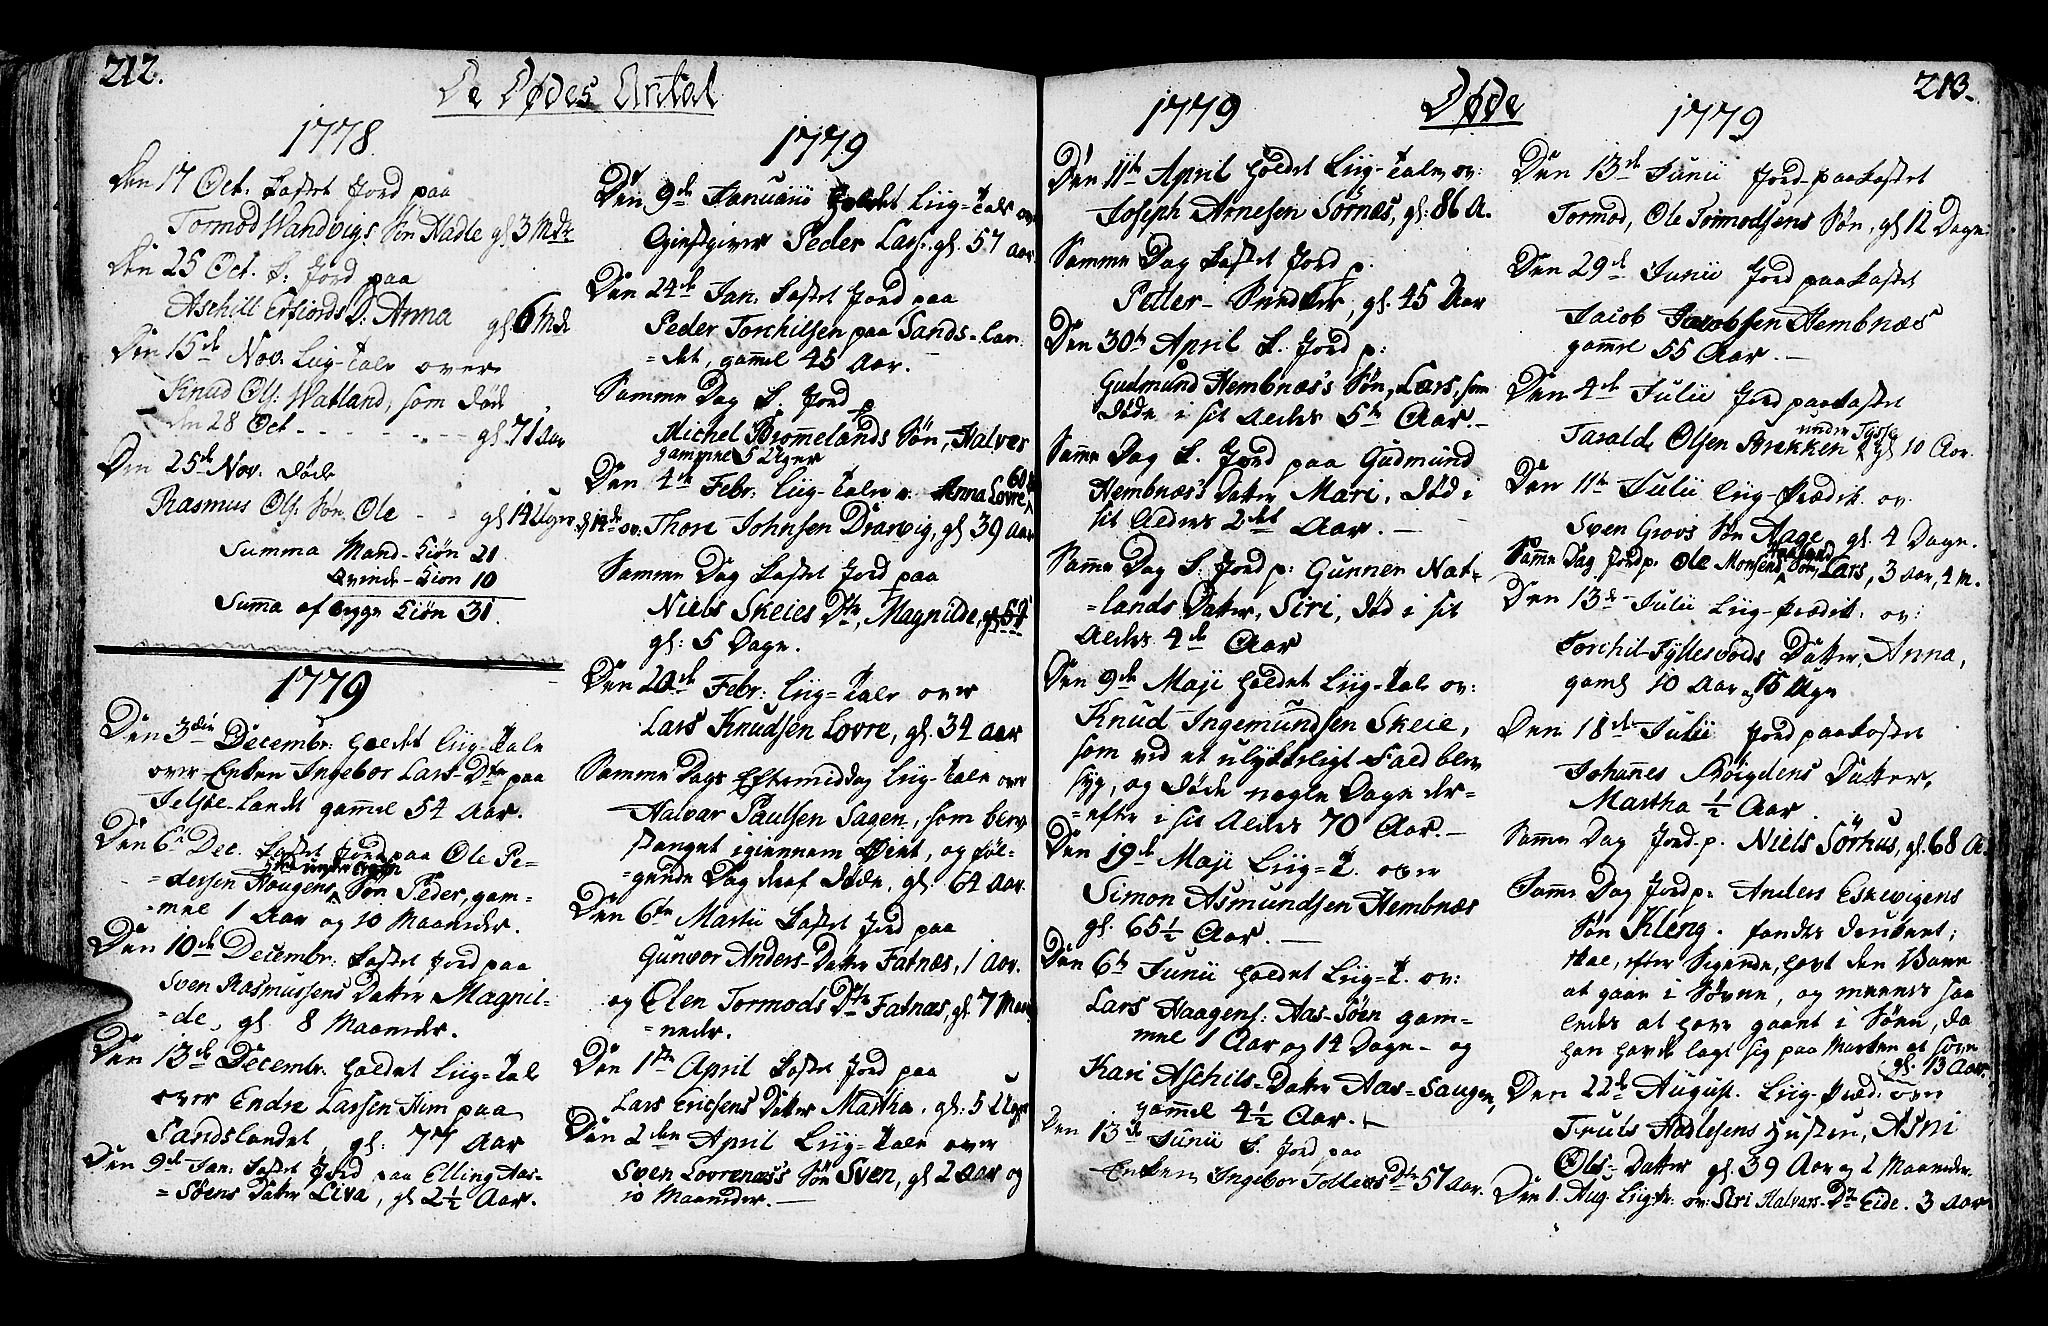 212.
De Dødes Antal
1778
Den 17 Oct. Kastet Jord paa
Tormod Wandvigs Søn Hadle gl 3 Mdr
Den 25 Oct. K. Jord paa
Aschill Erfiords D: Anna gl 6 Mdr
Den 15de Nov. Liig-Tale over
Knud Ols: Watland, som døde
den 28 Oct - - - - - - gl 71 Aar
Den 25de Nov. døde
Rasmus Ols. Søn Ole - - gl 14 Uger
Summa Mand-Kiøn 21
Qvinde-Kiøn 10
Summa af begge Kiøn 31.
1779
Den 3die Decembr: holdet Liig-Tale
over Enken Ingebor Lars-Dtr paa
Jelsøe-Landet gammel 54 Aar.
Den 6te Dec. Kastet Jord paa Ole Pe=
=dersen Haugens Søn Peder, gam=
=mel 1 Aar og 10 Maaneder.
Den 10de Decembr: Kastet Jord paa
Sven Rasmussens Datter Magnil=
=de, gl. 8 Maaneder.
Den 13de Decembr. holdet Liig=Tale
over Endre Larsen Hiim paa
Sandslandet, gl: 77 Aar
Den 9de Jan: Kastet Jord paa Elling Aas=
=Søens Datter Liva, gl 2½ Aar.
1779
Den 9de Januarii holdet Liig=Tale ov
Giestgiver Peder Lars. gl. 57 Aar.
Den 24de Jan: Kastet Jord paa
Peder Torchilsen paa Sands=Lan
=det, gammel 45 Aar.
Samme Dag K. Jord p
Michel Brommelands Søn, Halvor
gammel 5 Uger
Den 4de Febr: Liig-Tale o: Anna Lovre, 60
d 14de ov: Thore Johnsen Drarvig, gl 39 Aar
Samme Dag Kastet Jord paa
Niels Skeies Dtr, Magnilde,
gl: 5 Dage.
Den 20de Febr: Liig=Tale over
Lars Knudsen Lovre, gl: 34 Aar
Samme Dags Eftermiddag Liig=Tale over
Halvor Paulsen Sagen, som blev
stanget igiennem Øiet, og føl=
=gende Dag deraf døde, gl: 64 Aar.
Den 6te Martii Kastet Jord paa
Gunvor Anders-Datter Fatnæs, 1 Aar.
og Elen Tormods Dtr Fatnæs, gl. 7 Maa
=neder.
Den 1ste April Kastet Jord paa
Lars Ericsens Datter Martha, gl: 5 Uger
Den 2den April Liig=Tale over
Sven Lovrenæs's Søn Sven, gl 2 Aar og
10 Maaneder. —
1779
Døde
1779
213.
Den 11te April holdet Liig-Tale ov:
Joseph Arnesen Sörnæs, gl: 86 A.
Samme Dag Kastet Jord p.
Petter gl. 45 Aar
Den 30te April K. Jord p:
Gudmund Hembnæs's Søn, Lars, som
døde i sit Alders 5te Aar. —
Samme Dag K. Jord paa Gudmund
Hembnæs's Datter Mari, død i
sit Alders 2det Aar. —
Samme Dag K. Jord p: Gunner Nat=
=lands Datter, Siri, død i sit
Alders 4de Aar
Den 9de Maji holdet Liig=Tale ov:
Knud Ingemundsen Skeie,
som ved et ulykkeligt Fald blev
syg, og døde nogle Dage der=
=efter i sit Alders 70 Aar. —
Den 19de Maji Liig=T. over
Simon Asmundsen Hembnæs
gl. 65½ Aar. —
Den 6te Junii holdet Liig=T. ov:
Lars Haagens: Aas-Søen gam=
mel 1 Aar og 14 Dage — og
Kari Aschils=Datter Aas=Haugen,
gammel 4½ Aar. —
Den 13de Junii K. Jord paa
Enken Ingebor Tollevs Dtr 57 Aar.
Den 13de Junii Jord-paakastet
Tormod, Ole Tormodsens Søn, gl 12 Dage
Den 29de Junii Jord paakastet
Jacob Jacobsen Hembnæs
gammel 55 Aar. —
Den 4de Julii Jord paakastet
Tarald Olsen Brekken under Tysse gl 10 Aar.
Den 11te Julii Liig-Prædik. ov.
Sven Grovs Søn Aage gl. 4 Dage.
Samme Dag Jord p. Ole Monsens Søn, Lars, 3 Aar, 4 M.
Den 13de Julii Liig-Prædik: ov:
Torchil Fyllesvods Datter, Anna,
gaml 10 Aar, 15 Uge
Den 18de Julii Jord paakastet
Johannes Bøigdens Datter,
Martha ½ Aar.
Samme Dag Jord-p. Niels Sörhus, gl. 68 A.
Samme Dag Jord p: Anders Eskevigens
Søn Kleng. fandes druknet;
skal, efter Sigende, havt den Vane
at gaae i Søvne, og meenes saa
ledes at have gaaet i Søen, da
han havde lagt sig paa Marken at sove
gl: 13 Aar.
Den 22de August. Liig-Præd: over
Truls Hadlesens Hustru, Asni
Ols=Datter gl. 39 Aar og 2 Maaneder.
Den 1. Aug. Liig-Pr. ov: Siri Halvars-Dtr Eide. 3 Aar